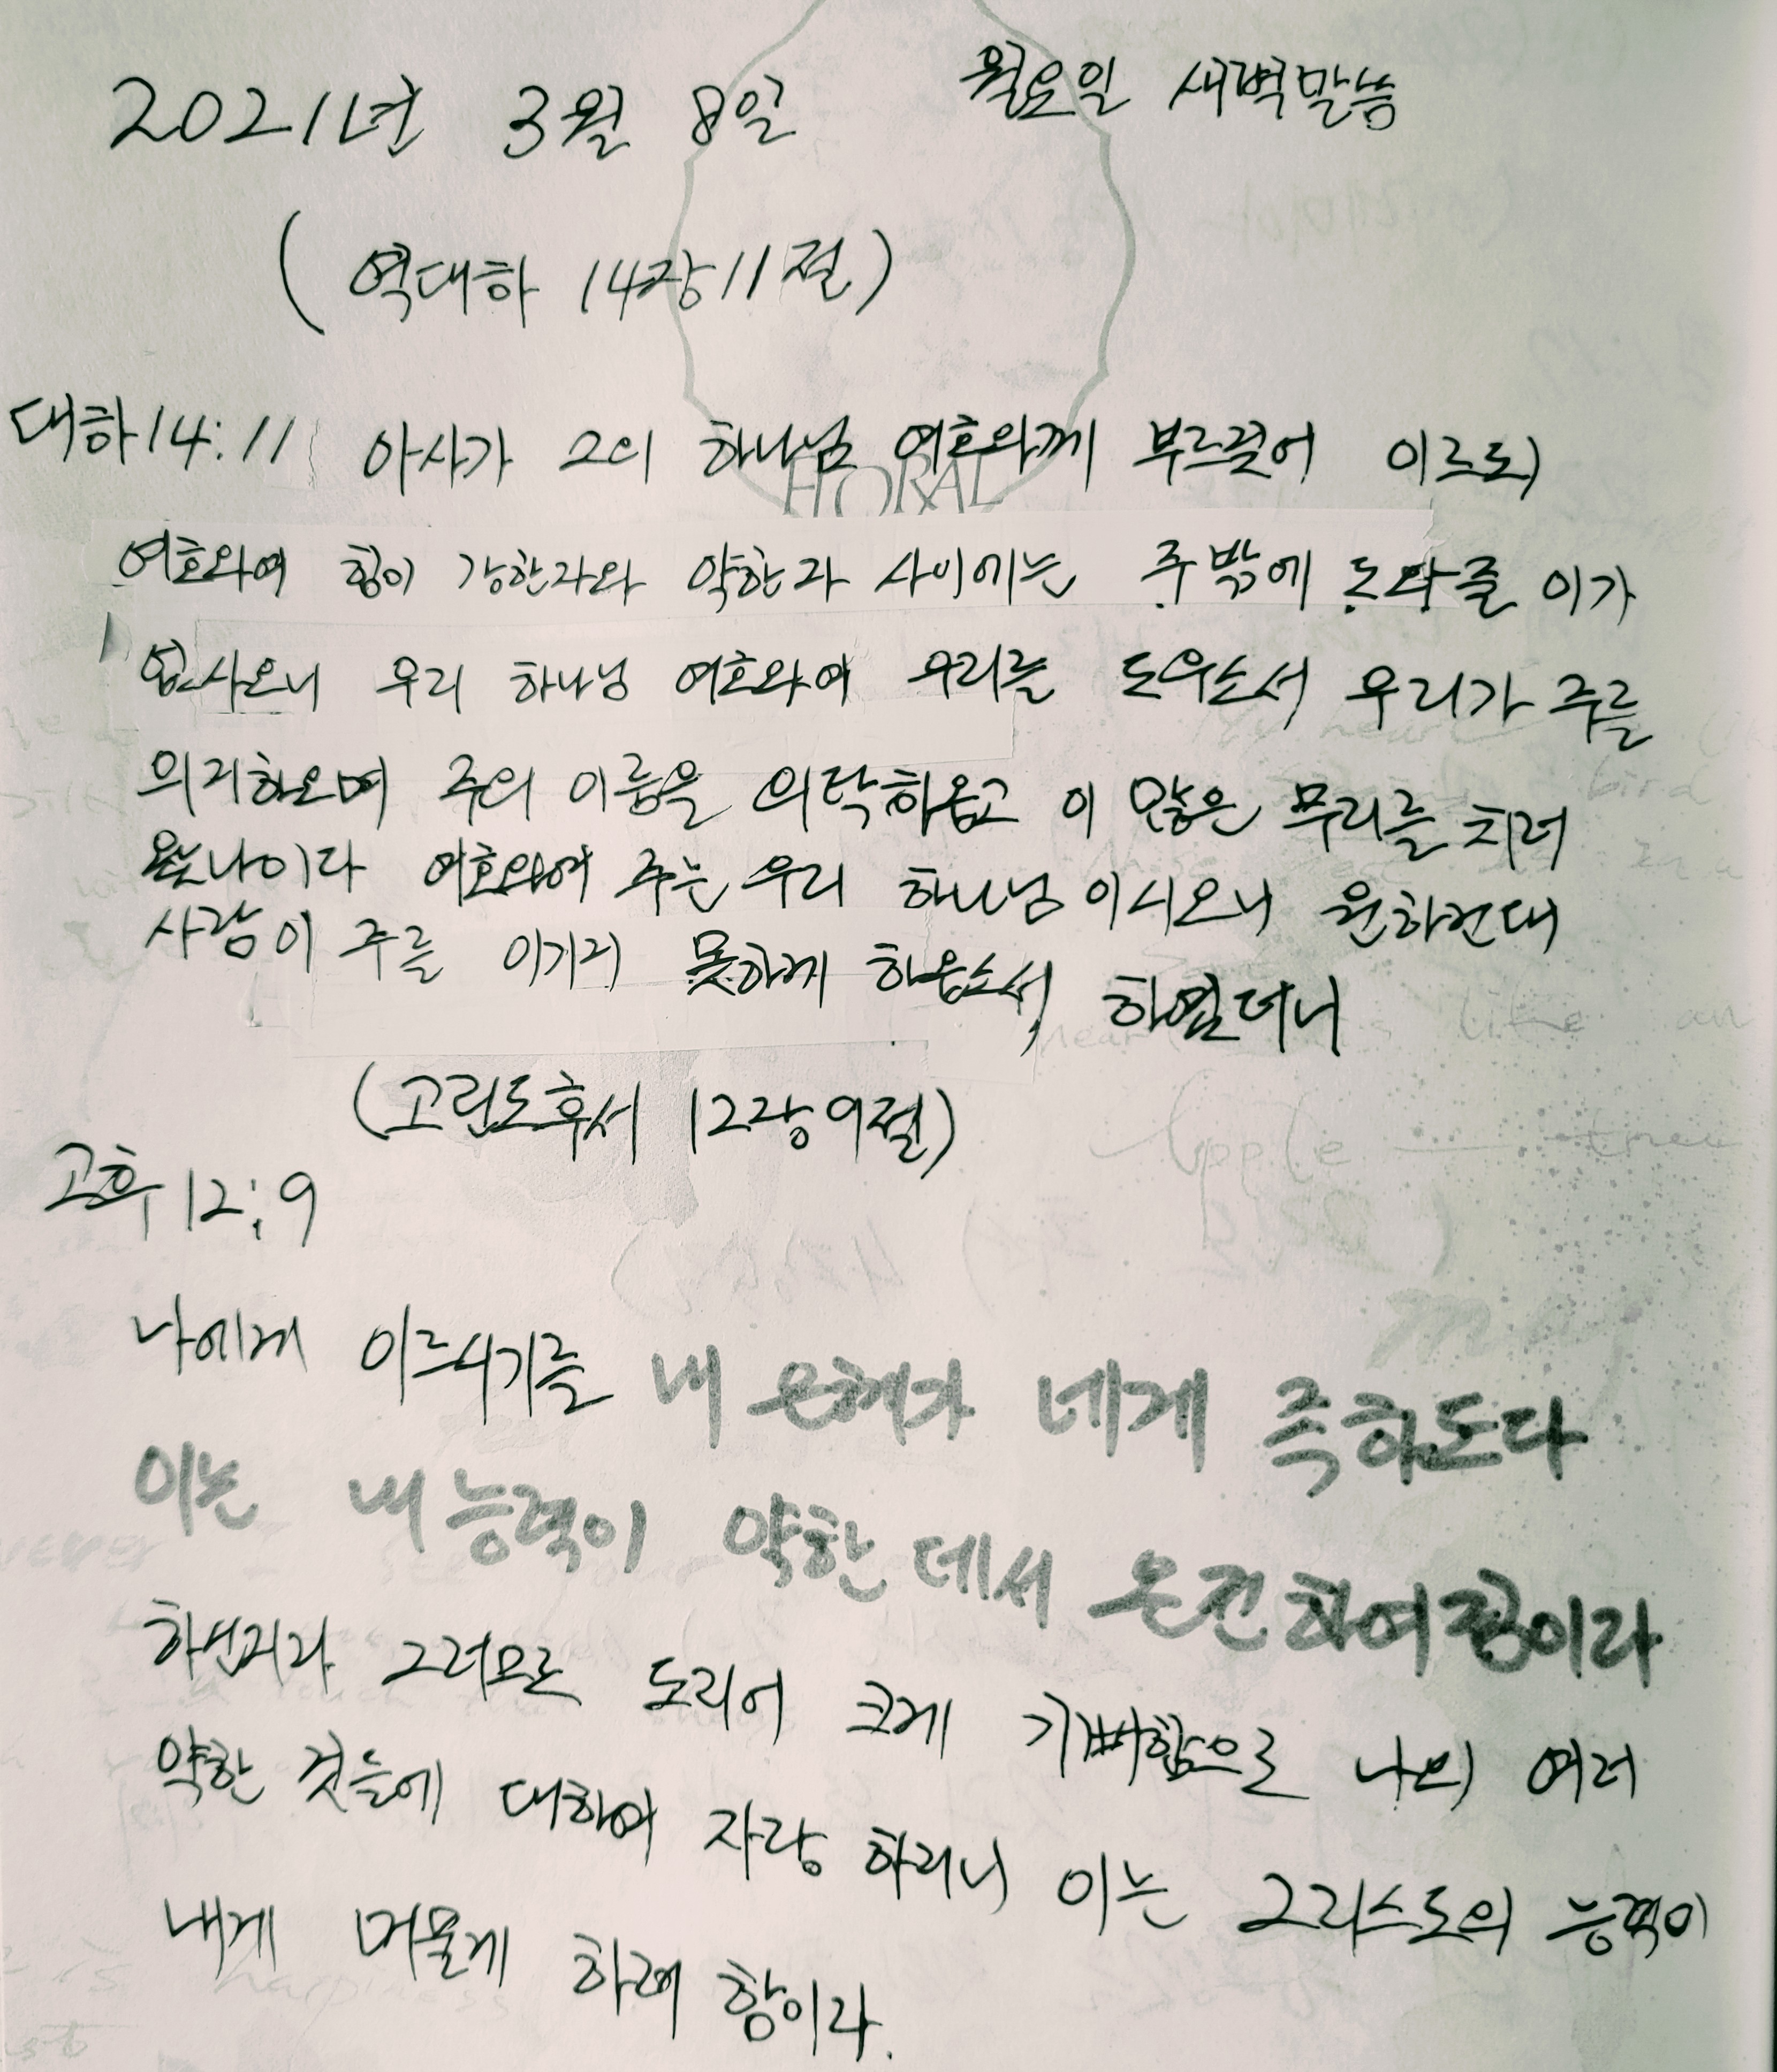 2021년 3월 8일 월요일 새벽말씀
(역대하 14장 11절)
대하14:11 아사가 그의 하나님 여호와께 부르짖어 이르되
FLORAL
여호와여 힘이 강한자와 약한자 사이에는 주밖에 도와줄 이가
없사오니 우리 하나님 여호와여 우리를 도우소서 우리가 주를
의지하오며 주의 이름을 의탁하옵고 이 많은 무리를 치러
왔나이다 여호와여 주는 우리 하나님이시오니 원하건대
사람이 주를 이기지 못하게 하옵소서 하였더니
(고린도후서 12장 9절)
고후 12:9
나에게 이르시기를 내 은혜가 네게 족하도다
이는 내 능력이 약한 데서 온전하여짐이라
하신지라 그러므로 도리어 크게 기뻐함으로 나의 여러
약한 것들에 대하여 자랑 하리니 이는 그리스도의 능력이
내게 머물게 하려 함이라.